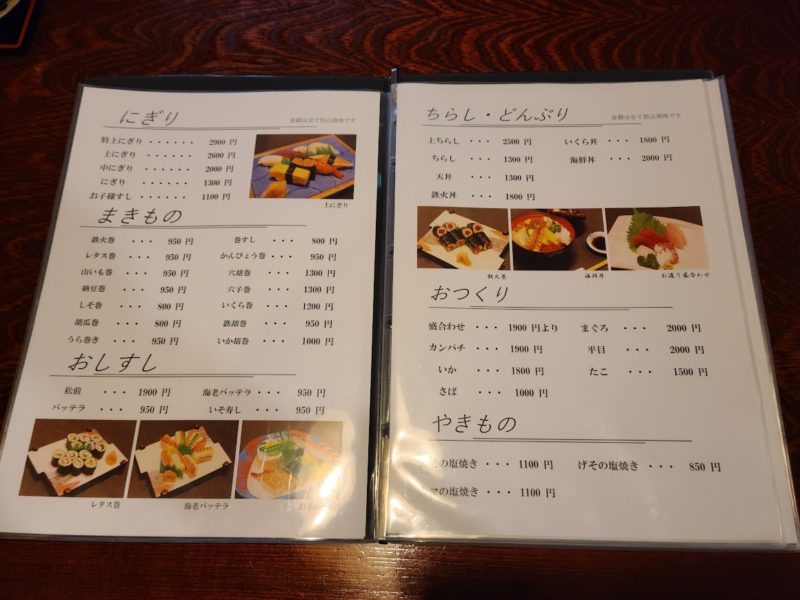 にぎり
金額は全て税込価格です
特上にぎり ・・・・・・ 2900 円
上にぎり ・・・・・・ 2600 円
中にぎり ・・・・・・ 2000 円
にぎり ・・・・・・ 1300 円
お子様すし ・・・・・・ 1100 円
上にぎり
まきもの
鉄火巻 ・・・ 950 円 巻すし ・・・ 800 円
レタス巻 ・・・ 950 円 かんぴょう巻 ・・・ 950 円
山いも巻 ・・・ 950 円 穴胡巻 ・・・ 1300 円
納豆巻 ・・・ 950 円 穴子巻 ・・・ 1300 円
しそ巻 ・・・ 800 円 いくら巻 ・・・ 1200 円
胡瓜巻 ・・・ 800 円 鉄胡巻 ・・・ 950 円
うら巻き ・・・ 950 円 いか胡巻 ・・・ 1000 円
おしすし
松前 ・・・ 1900 円 海老バッテラ ・・・ 950 円
バッテラ ・・・ 950 円 いそ寿し ・・・ 950 円
レタス巻 海老バッテラ
ちらし・どんぶり
金額は全て税込価格です
上ちらし ・・・ 2500 円 いくら丼 ・・・ 1800 円
ちらし ・・・ 1300 円 海鮮丼 ・・・ 2000 円
天丼 ・・・ 1300 円
鉄火丼 ・・・ 1800 円
鉄火巻 海鮮丼 お造り盛合わせ
おつくり
盛合わせ ・・・ 1900 円より まぐろ ・・・ 2000 円
カンパチ ・・・ 1900 円 平目 ・・・ 2000 円
いか ・・・ 1800 円 たこ ・・・ 1500 円
さば ・・・ 1000 円
やきもの
の塩焼き ・・・ 1100 円 げその塩焼き ・・・ 850 円
マの塩焼き ・・・ 1100 円